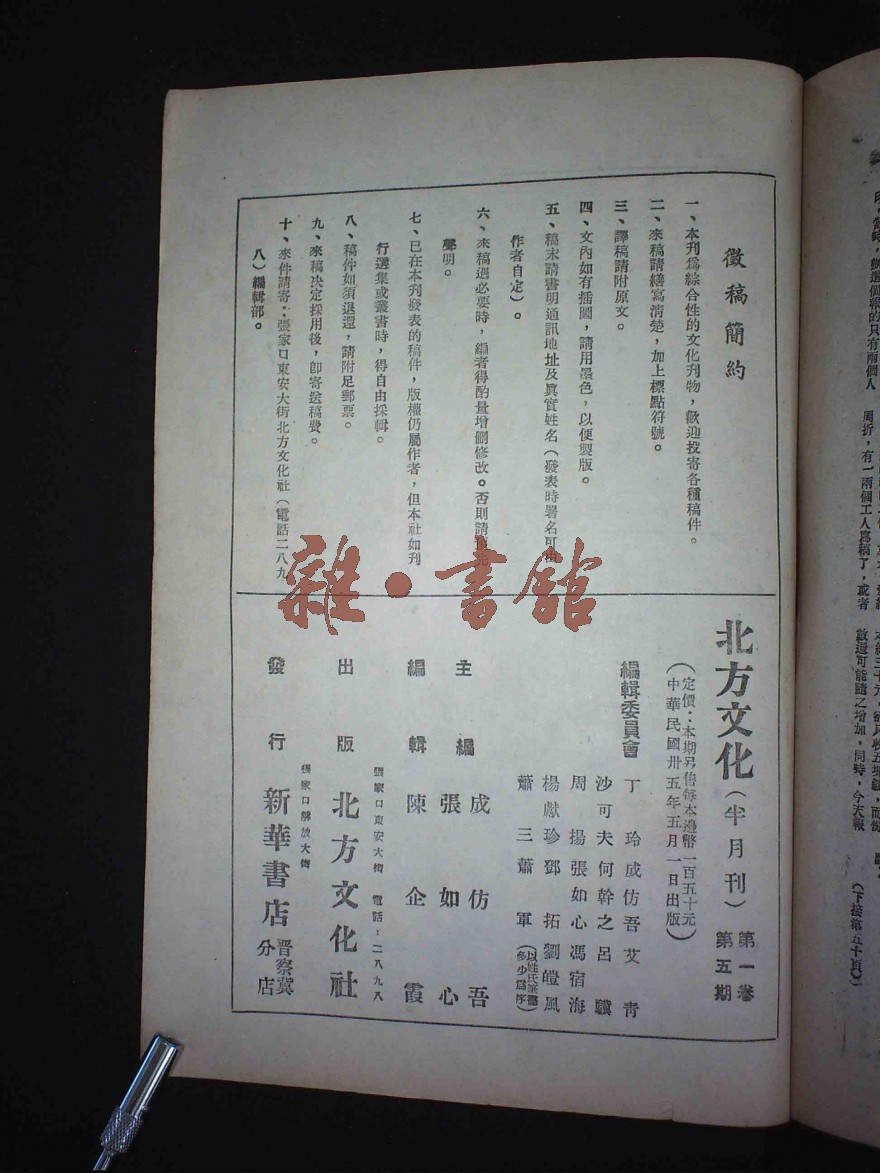 徵稿簡約
一、本刊爲綜合性的文化刊物，歡迎投寄各種稿件。
二、來稿請繕寫清楚，加上標點符號。
三、譯稿請附原文。
四、文內如有插圖，請用墨色，以便製版。
五、稿末請書明通訊地址及眞實姓名（發表時署名可由
作者自定）。
六、來稿遇必要時，編者得酌量增刪修改。否則請預先
聲明。
七、已在本刊發表的稿件，版權仍屬作者，但本社如刊
行選集或叢書時，得自由採輯。
八、稿件如須退還，請附足郵票。
九、來稿決定採用後，卽寄送稿費。
十、來件請寄：張家口東安大街北方文化社（電話二八九
八）編輯部。
北方文化（半月刊）
第一卷
第五期
（定價：本期另售每本邊幣一百五十元
中華民國卅五年五月一日出版）
編輯委員會
丁玲 成仿吾 艾青
沙可夫 何幹之 呂驥
周揚 張如心 馮宿海
楊獻珍 鄧拓 劉皚風
蕭三 蕭軍（以姓氏筆畫多少爲序）
主編 成仿吾
張如心
編輯 陳企霞
張家口東安大街 電話：二八九八
出版 北方文化社
張家口解放大街
發行 新華書店 晋察冀分店
雜·書館
的只有兩個人
周折，有一兩個工人爲稿了，或者
數還可能隨之增加，同時，今天報
（下接第五十頁）